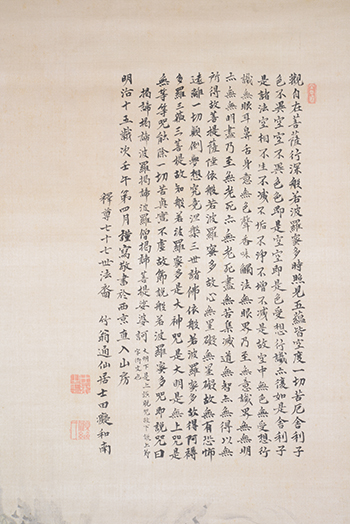 觀自在菩薩行深般若波羅蜜多時照見五蘊皆空度一切苦厄舍利子
色不異空空不異色色即是空空即是色受想行識亦復如是舍利子
是諸法空相不生不滅不垢不淨不增不減是故空中無色無受想行
識無眼耳鼻舌身意無色聲香味觸法無眼界乃至無意識界無無明
亦無無明盡乃至無老死亦無老死盡無苦集滅道無智亦無得以無
所得故菩提薩埵依般若波羅蜜多故心無罣礙無罣礙故無有恐怖
遠離一切顛倒夢想究竟涅槃三世諸佛依般若波羅蜜多故得阿耨
多羅三藐三菩提故知般若波羅蜜多是大神咒是大明咒是無上咒是
無等等咒能除一切苦真實不虛故說般若波羅蜜多咒即說咒曰
揭諦揭諦波羅揭諦波羅僧揭諦菩提娑婆訶
明治十五歲次壬午第四月謹寫敬書於西京魚入山房
釋尊七十七世法裔 竹翁通仙居士田癡和南